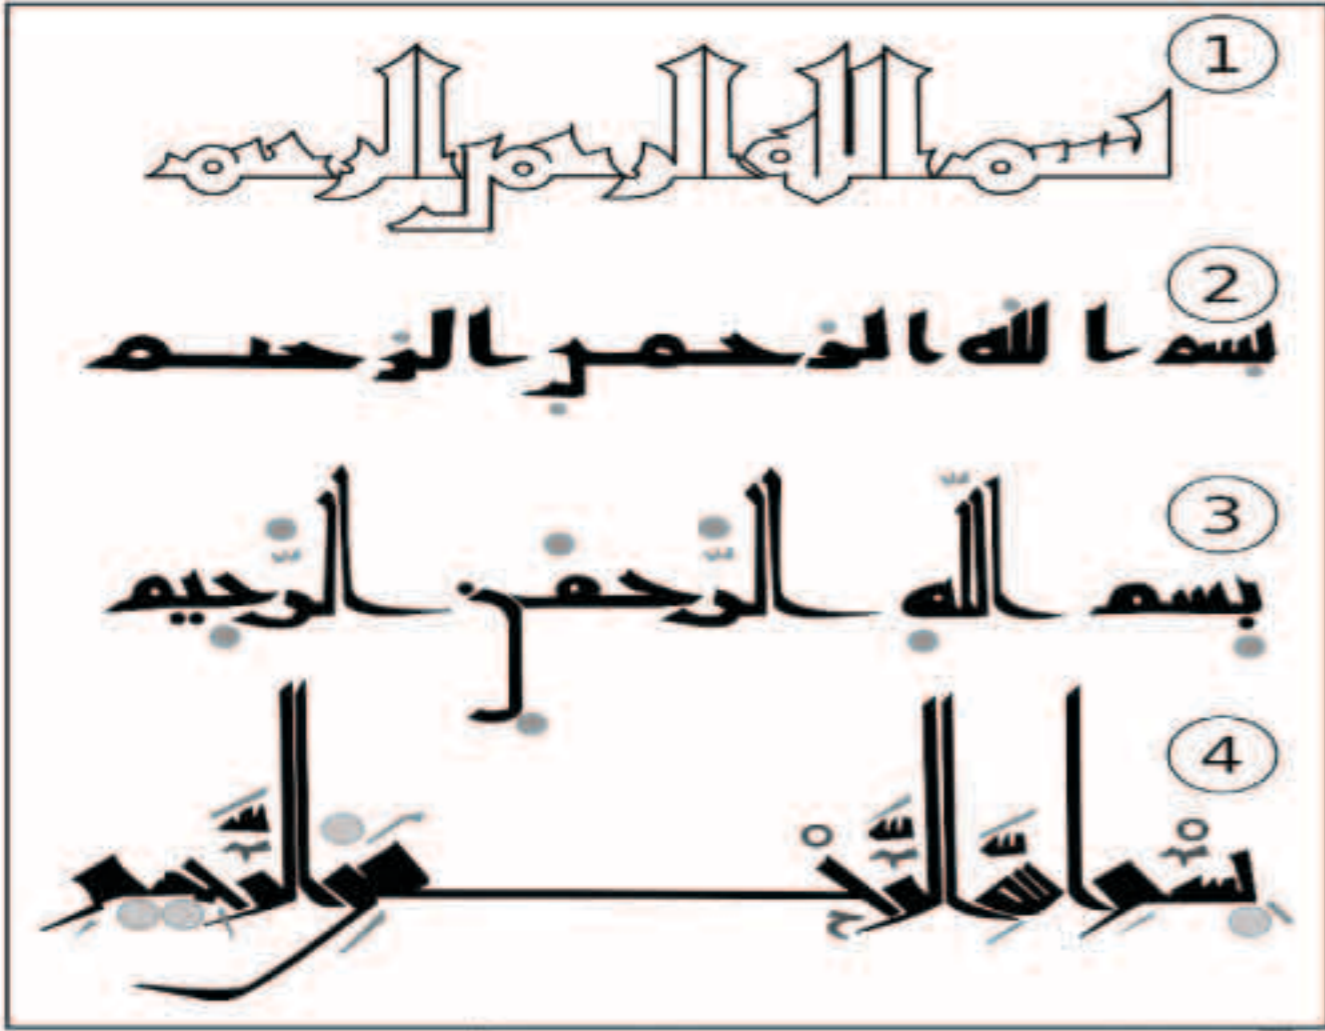 1
بسم الله الرحمن الرحيم
2
بسم ا لله ا لرحمن ا لرحيم
3
بسم اللّه الرّحمن الرّحيم
4
بسم اللّه الرّحمن الرّحيم